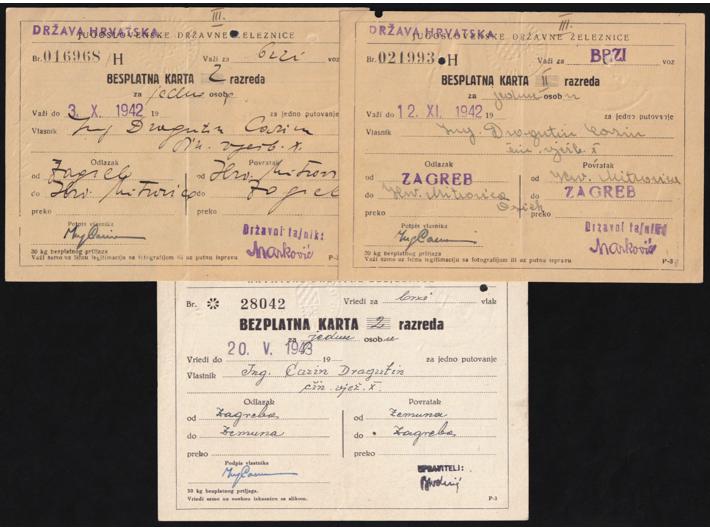 III.
DRŽAVA HRVATSKA
JUGOSLOVENSKE DRŽAVNE ŽELEZNICE
Br. 016968/H Važi za brzi voz
BESPLATNA KARTA 2 razreda
za jednu osobu
Važi do 3. X. 1942 19 za jedno putovanje
Vlasnik Ing Dragutin Carin
čin. vježb. X.
Odlazak Povratak
od Zagreb od Hrv. Mitrov
do Hrv. Mitrovica do Zagreb
preko preko
Potpis vlasnika
Ing Carin
Državni tajnik:
Marković
30 kg besplatnog prtljaga
Važi samo uz ličnu legitimaciju sa fotografijom ili uz putnu ispravu P-3
III.
DRŽAVA HRVATSKA
JUGOSLOVENSKE DRŽAVNE ŽELEZNICE
Br. 021993 H Važi za BRZI voz
BESPLATNA KARTA II razreda
za jednu osobu
Važi do 12. XI. 1942 19 za jedno putovanje
Vlasnik Ing. Dragutin Carin
čin. vježb. X
Odlazak Povratak
od ZAGREB od Hrv. Mitrovica
do Hrv. Mitrovica do ZAGREB
preko preko
Potpis vlasnika
Ing Carin
Državni tajnik:
Marković
30 kg besplatnog prtljaga
Važi samo uz ličnu legitimaciju sa fotografijom ili uz putnu ispravu P-3
Br. 28042 Vriedi za brzi vlak
BEZPLATNA KARTA 2 razreda
za jednu osobu
Vriedi do 20. V. 1943 19 za jedno putovanje
Vlasnik Ing. Carin Dragutin
čin. vjež. X.
Odlazak Povratak
od Zagreba od Zemuna
do Zemuna do Zagreba
preko preko
Podpis vlastnika
Ing Carin
UPRAVITELJ:
30 kg bezplatnog prtljaga.
P-3